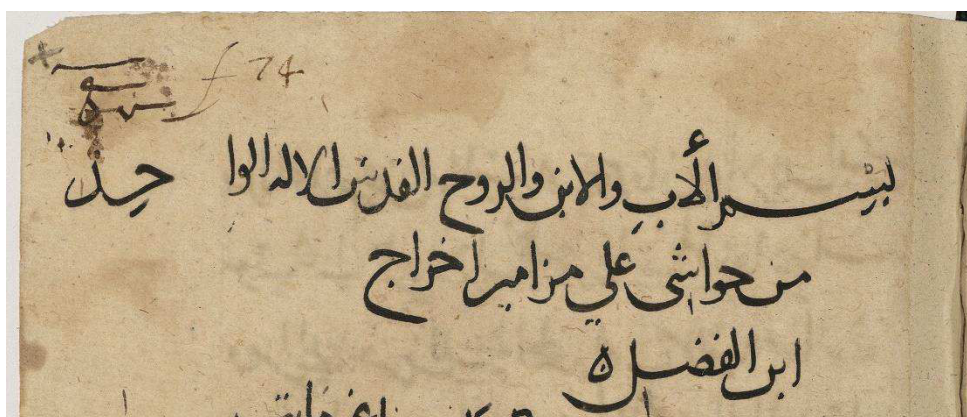 f 74
لبسم الاب والابن والروح القدس الاله الواحد
من حواشى علي مزامير اخراج
ابن الفضل ه